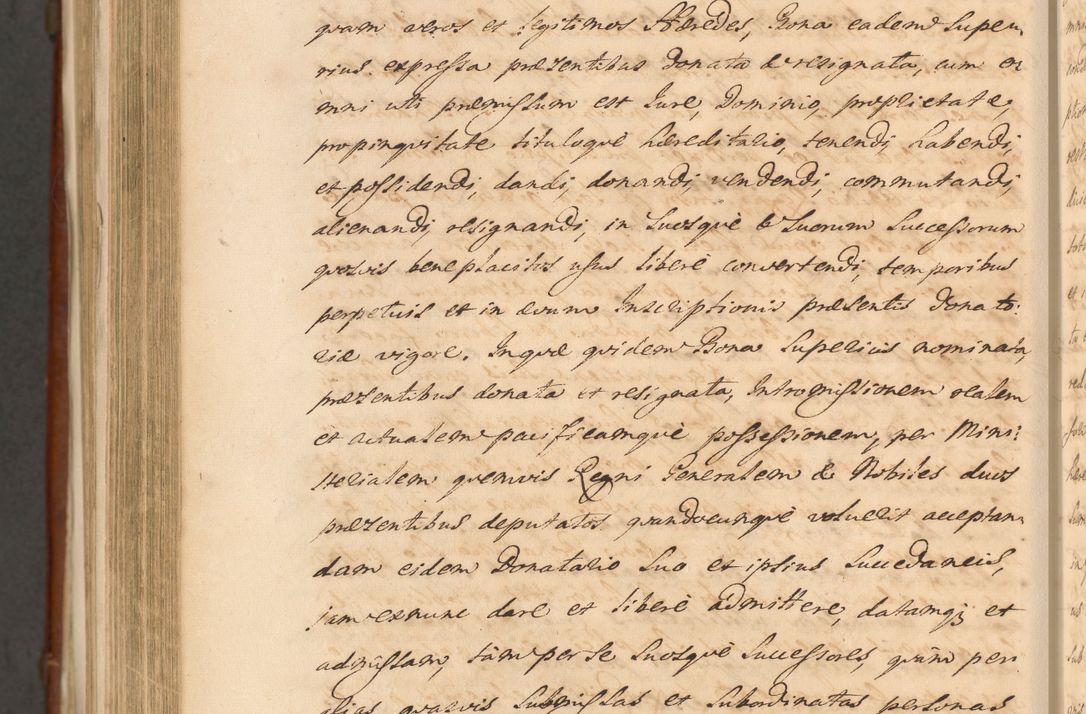 quam veros et legitimos Hæredes, Bona eadem Supe-
rius expressa præsentibus donata & resignata, cum o-
mni uti præmissum est Iure, Dominio, proprietate,
propinquitate tituloque hæreditario, tenendi, habendi,
et possidendi, dandi, donandi, vendendi, commutandi,
alienandi, resignandi, in Suosquè & Suorum Successorum
quosvis beneplacitos usus liberè convertendi, temporibus
perpetuis et in ævum Inscriptionis præsentis Donato:
riæ vigore. Inquæ quidem Bona Superius nominata,
præsentibus donata et resignata, Intromissionem realem
et actualem pacificamquè possessionem, per Mini:
sterialem quemvis Regni Generalem & Nobiles duos
præsentibus deputatos quandocunquè voluerit acceptan-
dam eidem Donatario Suo et ipsius Succedaneis,
jam exnunc dare et liberè admittere, datamq; et
admissam, tàm per se Suosquè Successores, quàm per
alias quasvis Submissas et Subordinatas personas